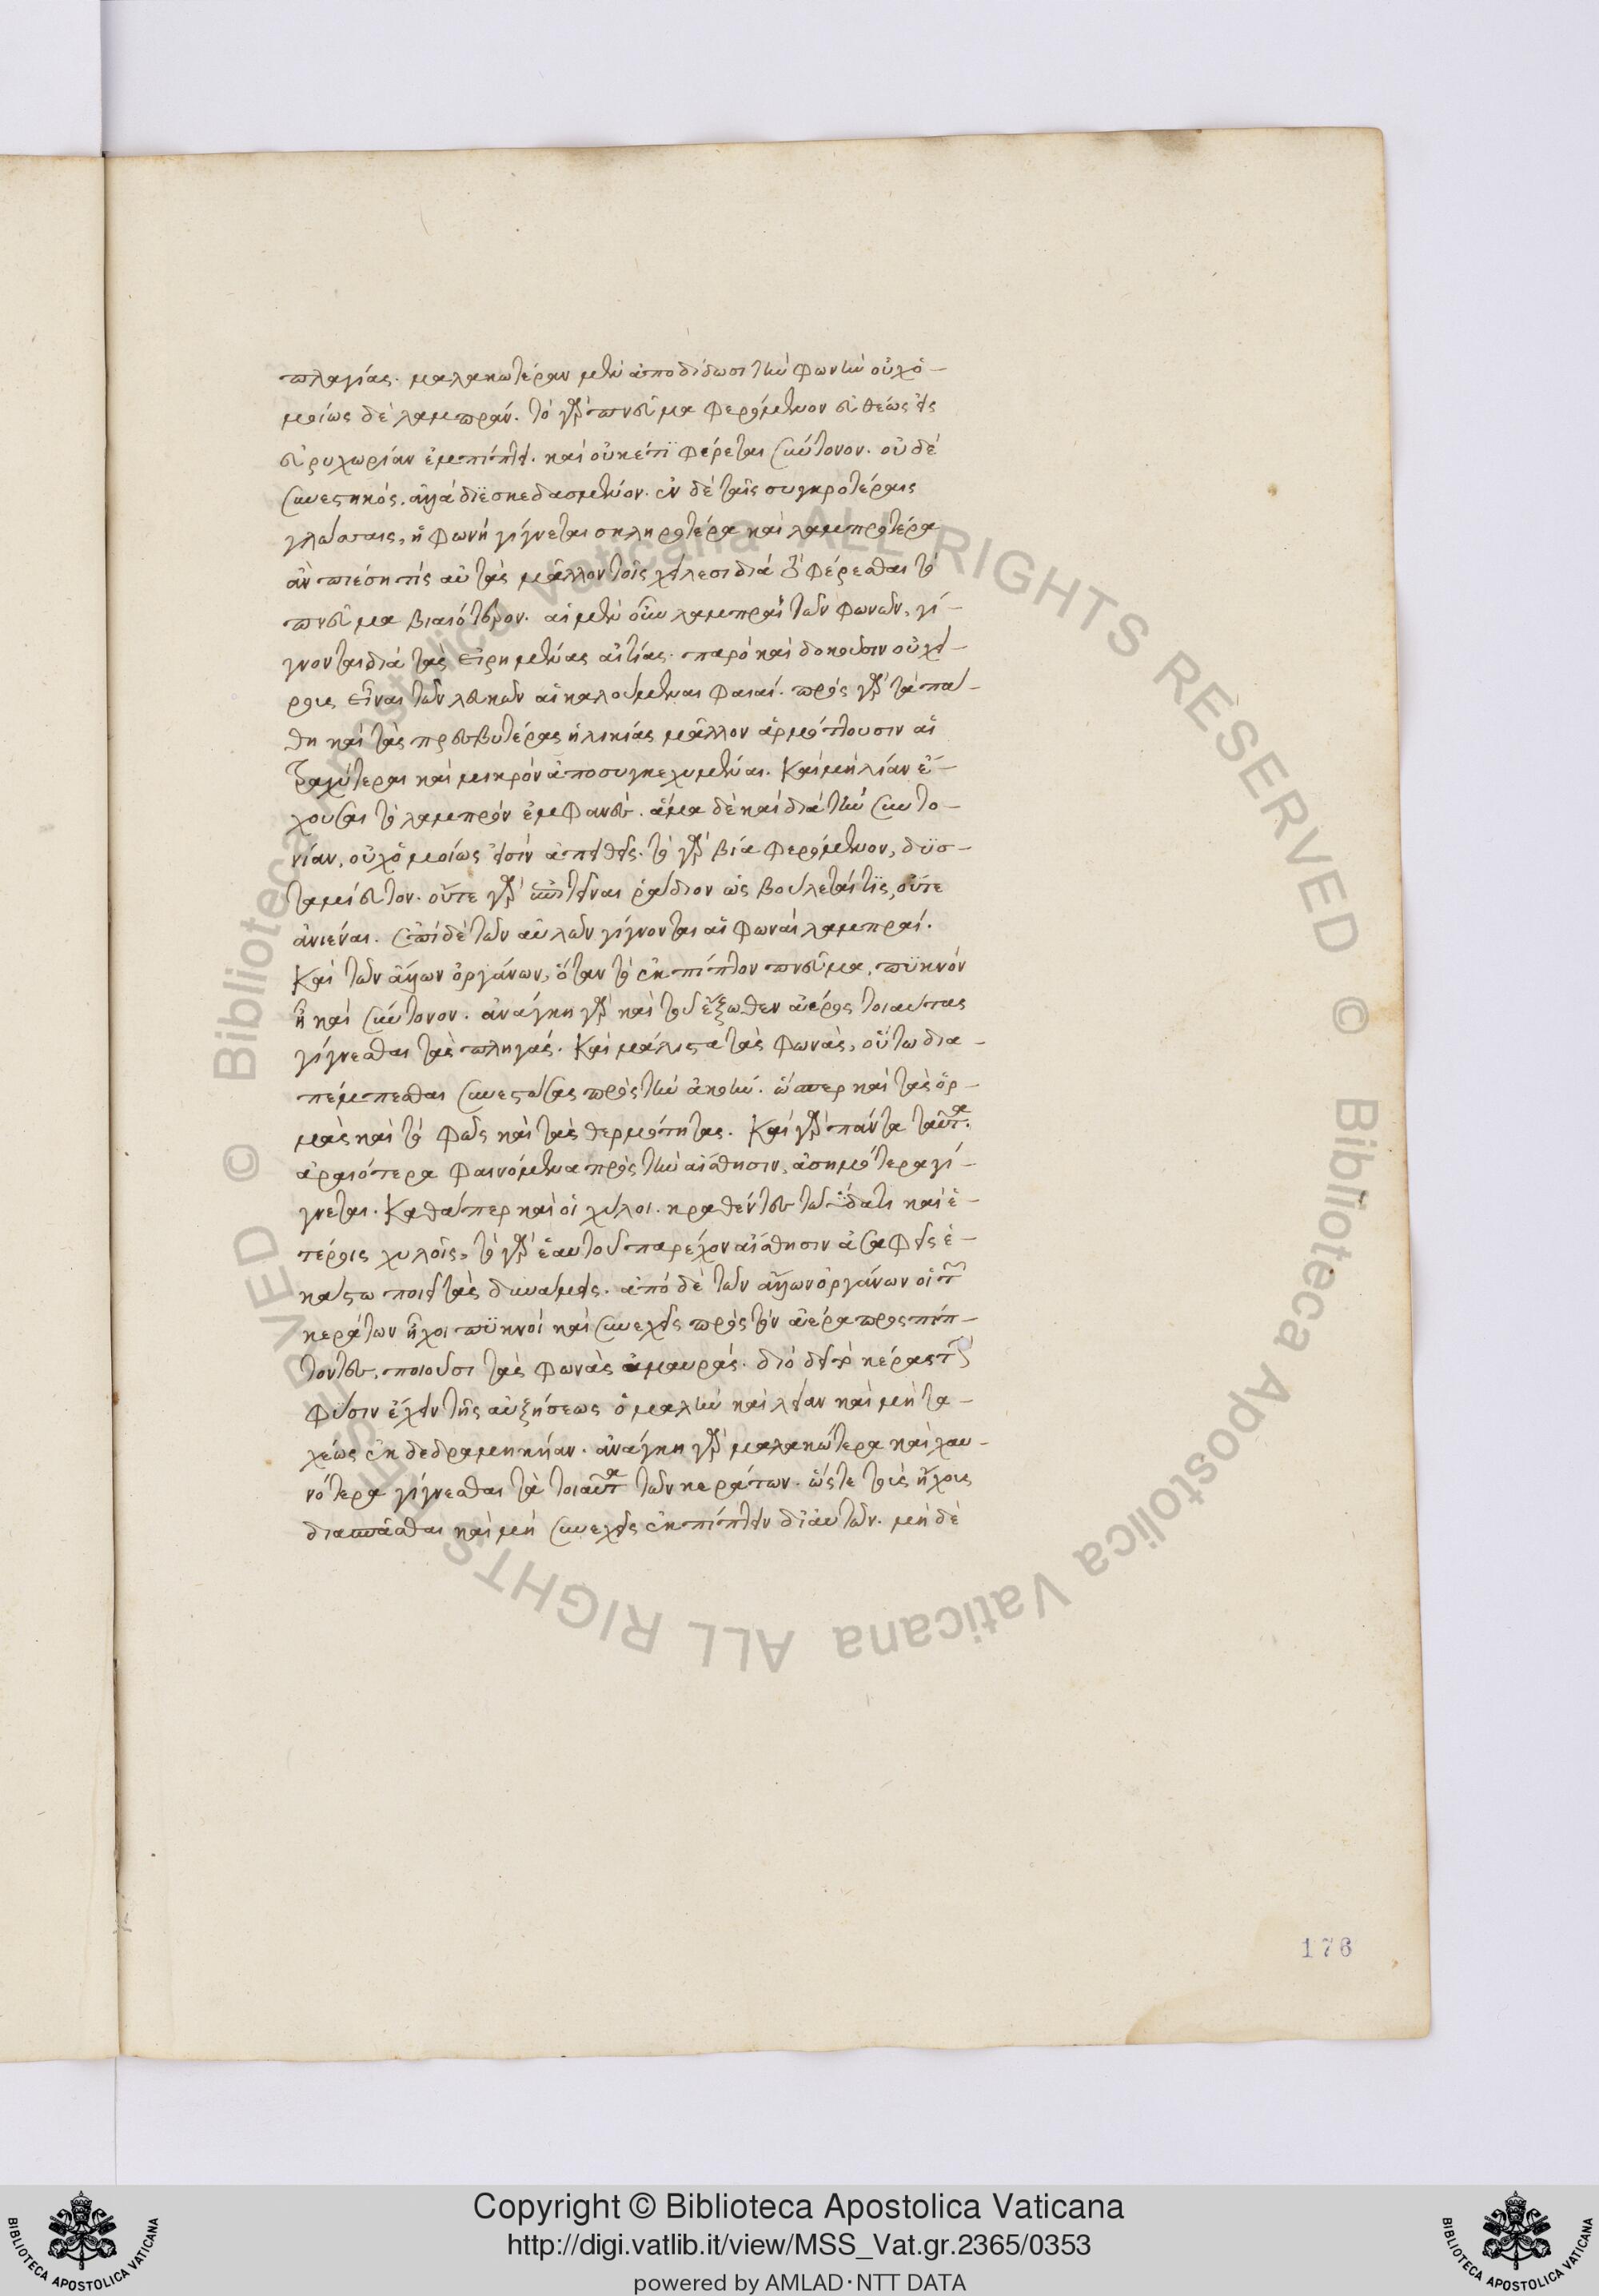 πλαγίας. μαλακωτέραν μὲν ἀποδίδωσι τὴν φωνὴν οὐχ ὁ-
μοίως δὲ λαμπράν. τὸ γὰρ πνεῦμα φερόμενον εὐθέως εἰς
εὐρυχωρίαν ἐμπίπτει. καὶ οὐκέτι φέρεται σύντονον. οὐδὲ
συνεστηκός. ἀλλὰ διεσκεδασμένον. ἐν δὲ ταῖς συγκροτέραις
γλώσσαις, ἡ φωνὴ γίγνεται σκληροτέρα καὶ λαμπροτέρα
ἂν πιέσῃ τίς αὐτὰς μᾶλλον τοῖς χείλεσι διὰ τὸ φέρεσθαι τὸ
πνεῦμα βιαιότερον. αἱ μὲν οὖν λαμπραὶ τῶν φωνῶν, γί-
γνονται διὰ τὰς εἰρημένας αἰτίας. παρὸ καὶ δοκοῦσιν οὐ χεί-
ρους εἶναι τῶν λευκῶν αἱ καλούμεναι φαιαί. πρὸς γὰρ τὰ πά-
θη καὶ τὰς πρεσβυτέρας ἡλικίας μᾶλλον ἁρμόττουσιν αἱ
τραχύτεραι καὶ μικρὸν ἀποσυγκεχυμέναι. Καὶ μὴ λίαν ἔ-
χουσαι τὸ λαμπρὸν ἐμφανές. ἅμα δὲ καὶ διὰ τὴν συντο-
νίαν, οὐχ ὁμοίως εἰσὶν ἀπειθεῖς. τὸ γὰρ βίᾳ φερόμενον, δυσ-
ταμίευτον. οὔτε γὰρ ἐπιτεῖναι ῥᾴδιον ὡς βούλεταί τις, οὔτε
ἀνιέναι. ἐπὶ δὲ τῶν αὐλῶν γίγνονται αἱ φωναὶ λαμπραί.
Καὶ τῶν ἄλλων ὀργάνων, ὅταν τὸ ἐκπίπτον πνεῦμα, πυκνὸν
ᾖ καὶ σύντονον. ἀνάγκη γὰρ καὶ τοῦ ἔξωθεν ἀέρος τοιαύτας
γίγνεσθαι τὰς πληγάς. Καὶ μάλιστα τὰς φωνὰς, οὕτω δια-
πέμπεσθαι συνεστώσας πρὸς τὴν ἀκοήν. ὥσπερ καὶ τὰς ὀρ-
μὰς καὶ τὸ φῶς καὶ τὰς θερμότητας. Καὶ γὰρ πάντα ταῦτα
ἀραιότερα φαινόμενα πρὸς τὴν αἴσθησιν, ἀσημότερα γί-
γνεται. Καθάπερ καὶ οἱ χυλοι. κραθέντες τῷ ὕδατι καὶ ἑ-
τέροις χυλοῖς, τὸ γὰρ ἑαυτοῦ παρέχον αἴσθησιν ἀσαφεῖς ἑ-
κάστῳ ποιεῖ τὰς δυνάμεις. ἀπὸ δὲ τῶν ἄλλων ὀργάνων οἱ τῶν
κεράτων ἦχοι πυκνοὶ καὶ συνεχεῖς πρὸς τὸν ἀέρα προσπίπ-
τοντες, ποιοῦσι τὰς φωνὰς ἀμαυράς. διὸ δεῖ τὸ κέρας τὴν
φύσιν ἔχειν τῆς αὐξήσεως ὁμαλὴν καὶ λείαν καὶ μὴ τα-
χέως ἐκδεδραμηκυῖαν. ἀνάγκη γὰρ μαλακώτερα καὶ χαυ-
νότερα γίγνεσθαι τὰ τοιαῦτα τῶν κεράτων. ὥστε τοὺς ἤχους
διασπᾶσθαι καὶ μὴ συνεχεῖς ἐκπίπτειν δι' αὐτῶν. μηδὲ
176
Copyright © Biblioteca Apostolica Vaticana
http://digi.vatlib.it/view/MSS_Vat.gr.2365/0353
powered by AMLAD·NTT DATA